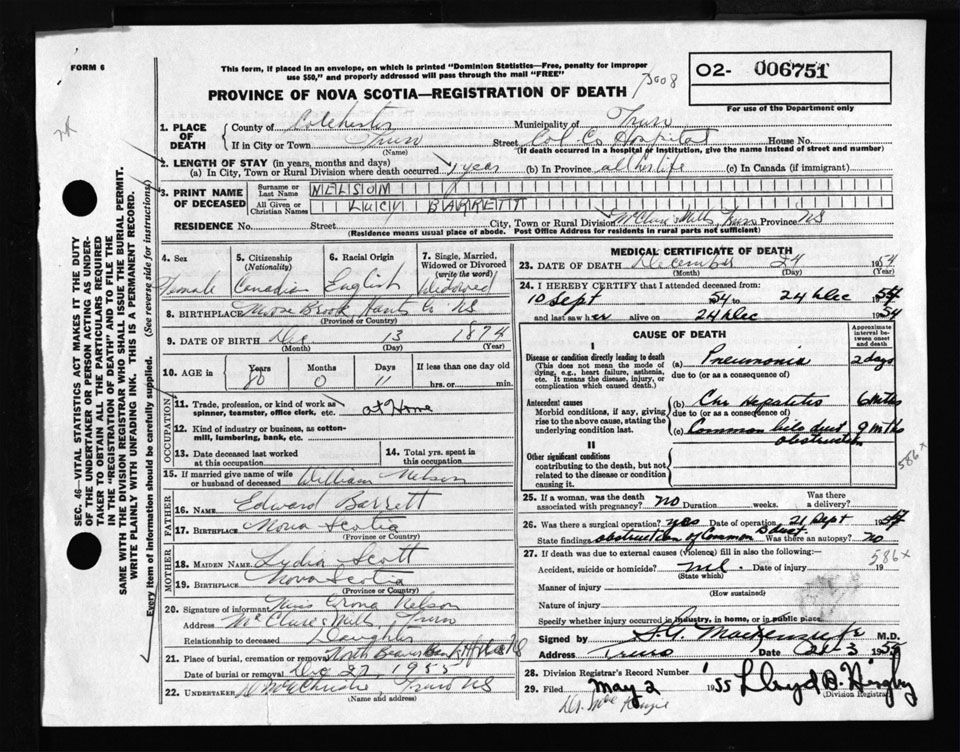 FORM 6
This form, if placed in an envelope, on which is printed "Dominion Statistics—Free, penalty for improper
use $50," and properly addressed will pass through the mail "FREE"
PROVINCE OF NOVA SCOTIA—REGISTRATION OF DEATH
02- 006751
For use of the Department only
1. PLACE OF DEATH
County of Colchester Municipality of Truro
If in City or Town Truro Street Col Co Hospital House No.
(Name) (If death occurred in a hospital or institution, give the name instead of street and number)
2. LENGTH OF STAY (in years, months and days)
(a) In City, Town or Rural Division where death occurred 1 year (b) In Province all his life (c) In Canada (if immigrant)
3. PRINT NAME OF DECEASED
Surname or Last Name NELSON
All Given or Christian Names LUCY BARRETT
RESIDENCE No. Street City, Town or Rural Division McClure's Mills, Truro Province NS
(Residence means usual place of abode. Post Office Address for residents in rural parts not sufficient)
4. Sex Female
5. Citizenship (Nationality) Canadian
6. Racial Origin English
7. Single, Married, Widowed or Divorced (write the word) Widowed
8. BIRTHPLACE Moose Brook, Hants Co NS
(Province or County)
9. DATE OF BIRTH Dec 13 1874
(Month) (Day) (Year)
10. AGE in Years 80 Months 0 Days 11 If less than one day old
hrs. or min.
OCCUPATION
11. Trade, profession, or kind of work as spinner, teamster, office clerk, etc. at Home
12. Kind of industry or business, as cotton-mill, lumbering, bank, etc.
13. Date deceased last worked at this occupation
14. Total yrs. spent in this occupation
15. If married give name of wife or husband of deceased William Nelson
FATHER
16. Name Edward Barrett
17. Birthplace Nova Scotia
(Province or Country)
MOTHER
18. Maiden Name Lydia Scott
19. Birthplace Nova Scotia
(Province or Country)
20. Signature of informant Miss Nelson
Address McClure's Mills, Truro
Relationship to deceased Daughter
21. Place of burial, cremation or removal North Beaver Bank NS
Date of burial or removal Dec 27, 1955
22. Undertaker Truro NS
(Name and address)
MEDICAL CERTIFICATE OF DEATH
23. DATE OF DEATH December 24 1954
(Month) (Day) (Year)
24. I HEREBY CERTIFY that I attended deceased from:
10 Sept 1954 to 24 Dec 1954
and last saw her alive on 24 Dec 1954
CAUSE OF DEATH
Approximate interval between onset and death
I
Disease or condition directly leading to death (a) Pneumonia 2 days
(This does not mean the mode of dying, e.g., heart failure, asthenia, etc. It means the disease, injury, or complication which caused death.)
due to (or as a consequence of)
Antecedent causes (b) Chr hepatitis 6 mths
Morbid conditions, if any, giving rise to the above cause, stating the underlying condition last.
due to (or as a consequence of)
(c) Common bile duct obstruction 9 mths
II
Other significant conditions
contributing to the death, but not related to the disease or condition causing it.
586 x
25. If a woman, was the death associated with pregnancy? no Duration weeks. Was there a delivery?
26. Was there surgical operation? yes Date of operation 21 Sept 1954
State findings obstruction of Common B duct Was there an autopsy? No
27. If death was due to external causes (violence) fill in also the following:—
586 x
Accident, suicide or homicide? nil. Date of injury 19
(State which)
Manner of injury
(How sustained)
Nature of injury
Specify whether injury occurred in industry, in home, or in public place.
Signed by S.G. MacKenzie Jr M.D.
Address Truro Date 3 195
28. Division Registrar's Record Number 1
29. Filed May 2 1955 Lloyd B.
(Division Registrar)
Dr. MacKenzie
SEC. 46—VITAL STATISTICS ACT MAKES IT THE DUTY
OF THE UNDERTAKER OR PERSON ACTING AS UNDER-
TAKER TO OBTAIN ALL THE PARTICULARS REQUIRED
IN THE "REGISTRATION OF DEATH" AND TO FILE THE
SAME WITH THE DIVISION REGISTRAR WHO SHALL ISSUE THE BURIAL PERMIT.
WRITE PLAINLY WITH UNFADING INK. THIS IS A PERMANENT RECORD.
Every item of information should be carefully supplied. (See reverse side for instructions)